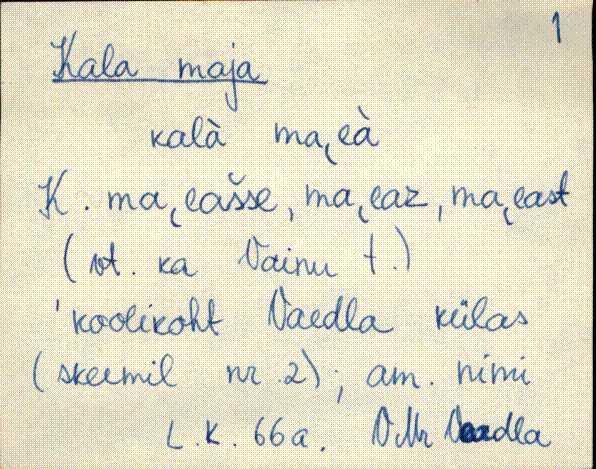 1
Kala maja
kalà ma̮eà
K. ma̮eašse, ma̮eaz, ma̮east
(vt. ka Vainu t.)
'koolikoht Vaedla külas
(skeemil nr. 2); am. nimi
L.K. 66a. VMr Vaedla